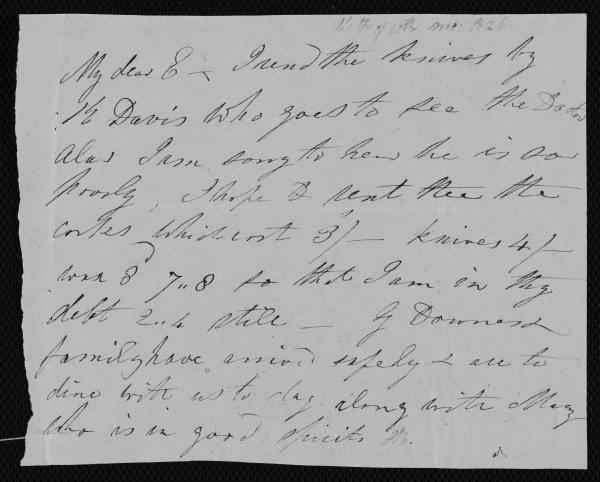 14th of 10th mo: 1826
My dear E – I send the knives by
Davis who goes to see the Doctor
alas I am sorry to hear he is so
poorly, I hope D sent thee the
corks which cost 3/– knives 4/–
wax 8d 7„8 so that I am in thy
debt 2„4 still – G Downes &
family have arriv'd safely & are to
dine with us to day along with Mary
who is in good spirits